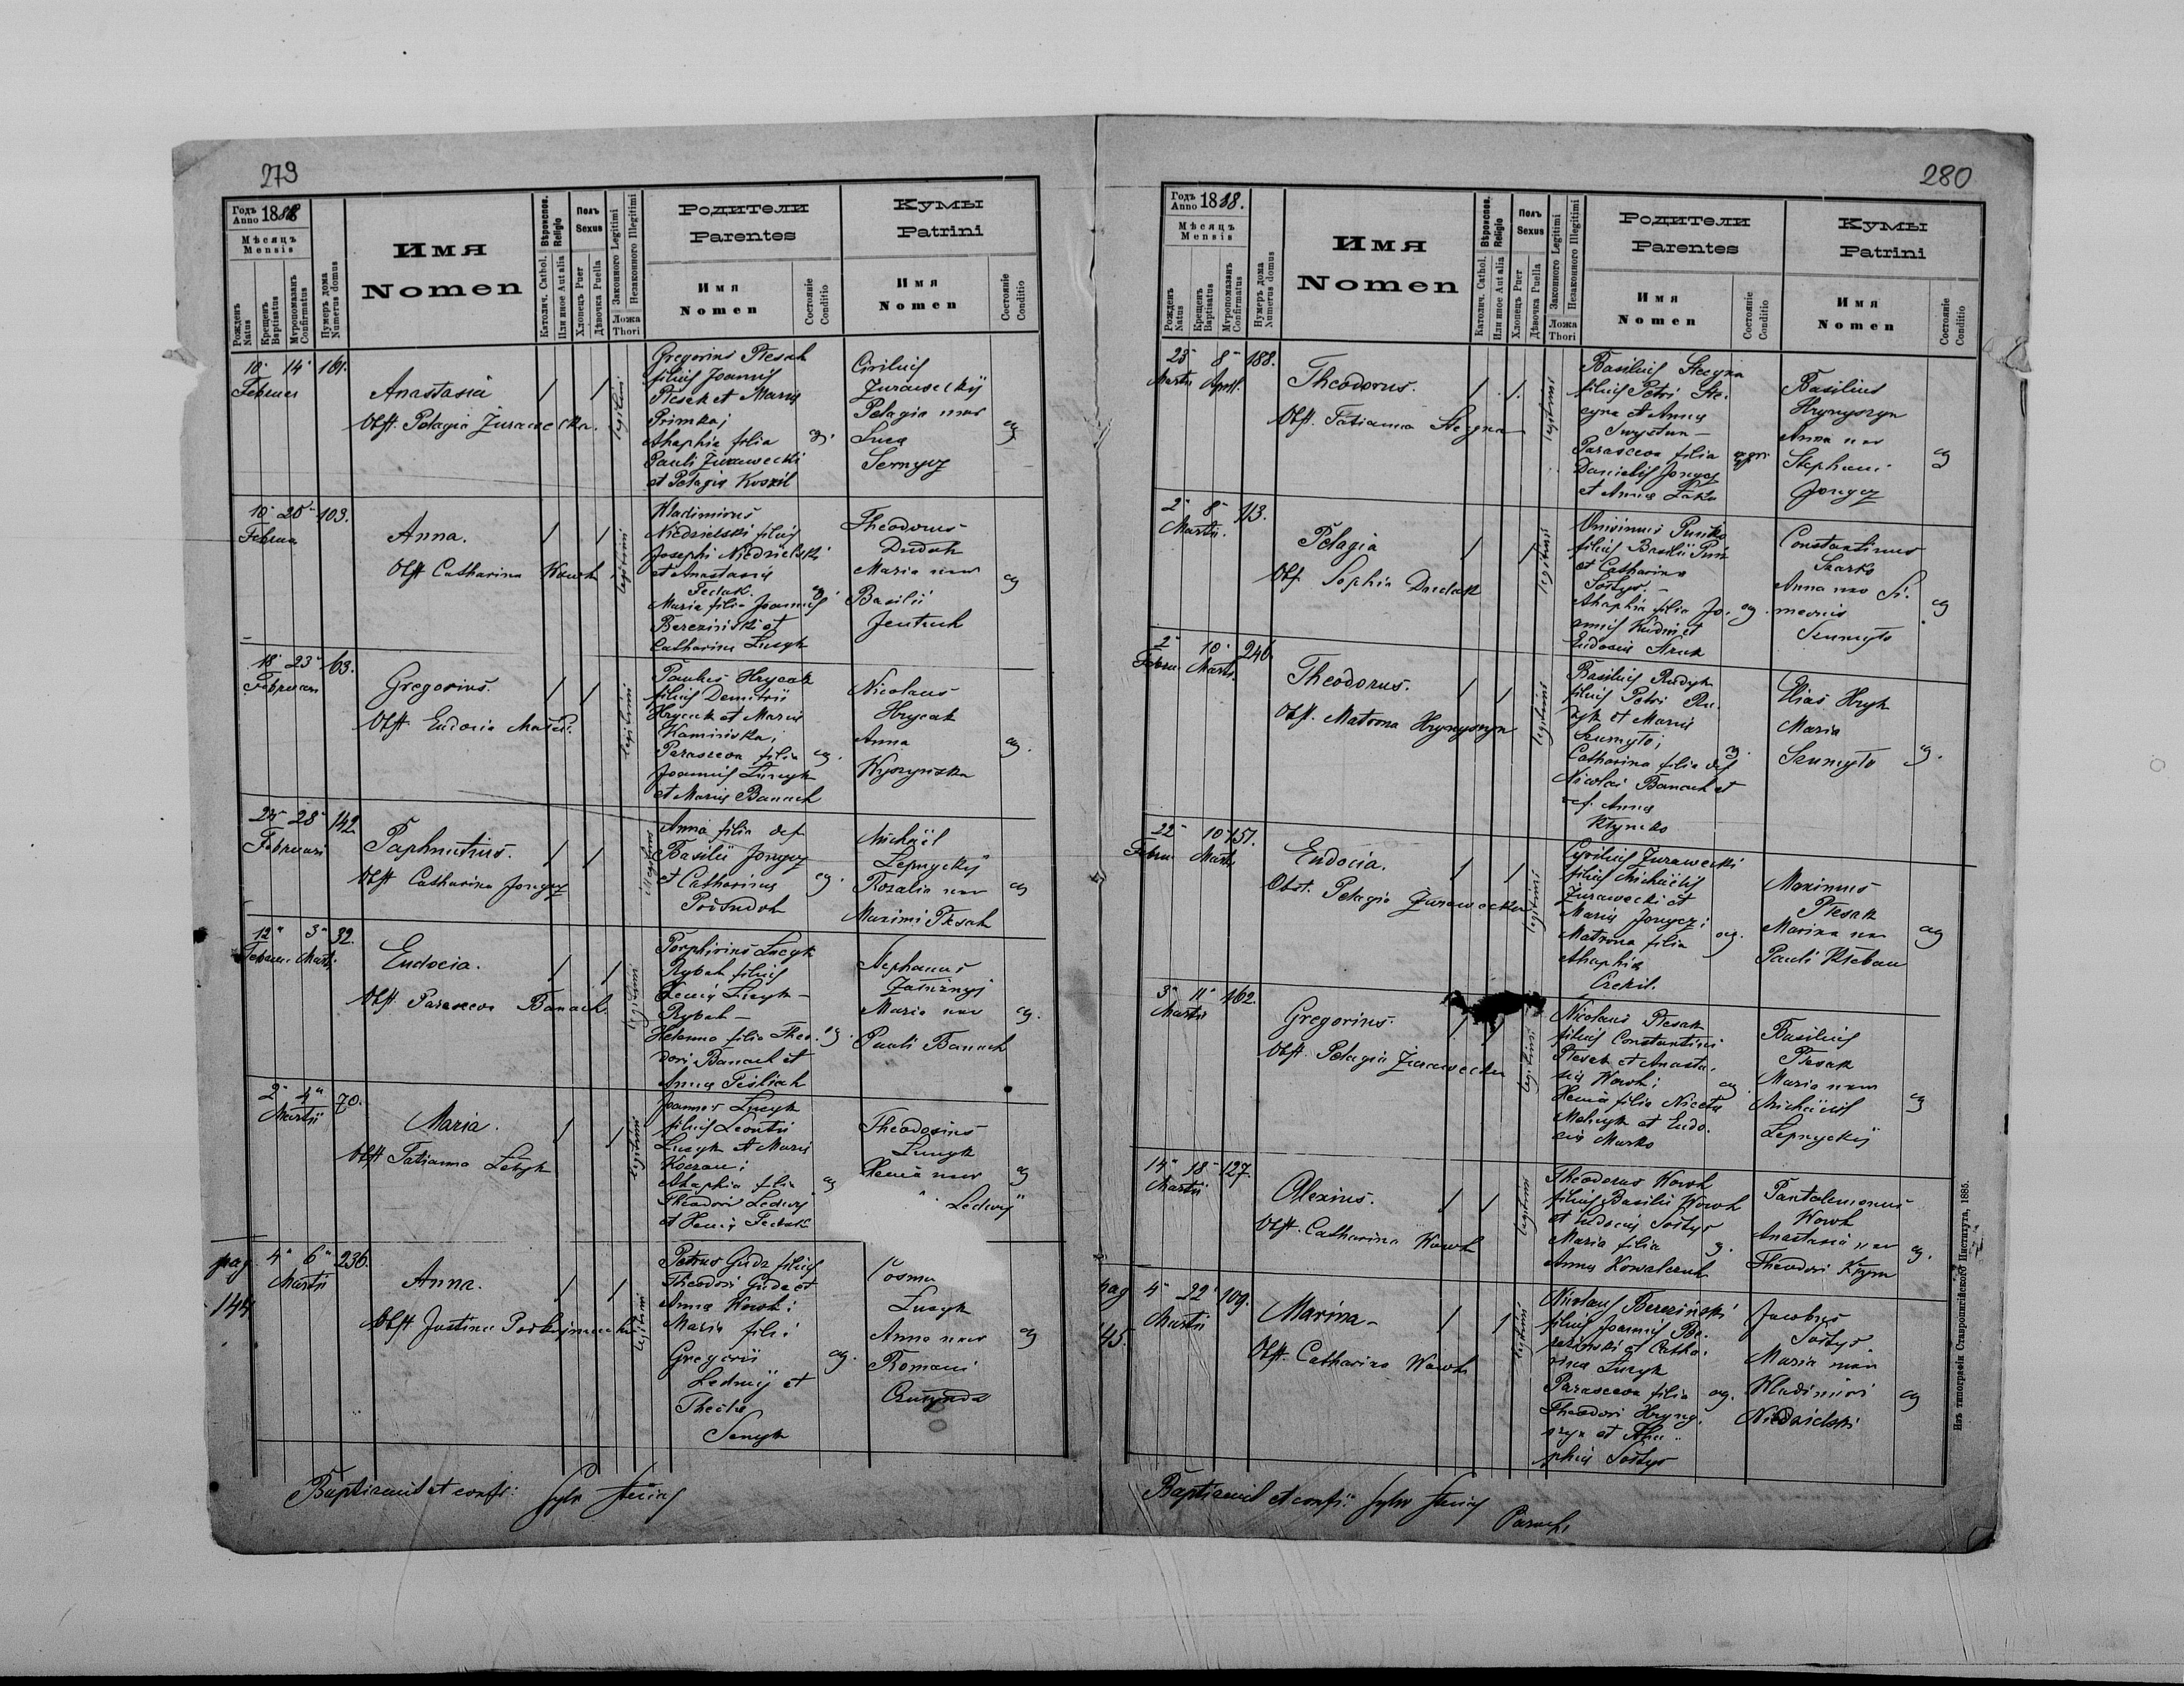 279
Годъ Anno 1888
Мѣсяцъ Mensis
Рожденъ Natus
Крещенъ Baptisatus
Муропомазанъ Confirmatus
Нумеръ дома Numerus domus
Имя Nomen
Вѣроиспов. Religio
Католич. Cathol.
Или иное Aut alia
Полъ Sexus
Хлопецъ Puer
Дѣвочка Puella
Законного Legitimi
Незаконного Illegitimi
Ложа Thori
Родители Parentes
Имя Nomen
Состояніе Conditio
Кумы Patrini
Имя Nomen
Состояніе Conditio
10 14 161.
Februar
Anastasia
Obst. Pelagia Zurawecka.
legitimi
Gregorius Ptesak
filius Joannis
Ptesak et Maria
Primka;
Ahaphia filia
Pauli Zurawecki
et Pelagia Koskil
ag.
Cirilius
Zuraweckij
Pelagia uxor
Luca
Sernycz
ag
10 20 103.
Februa
Anna.
Obst Catharina Wowk
legitimi
Wladimirus
Niedzielski filius
Josephi Niedzielski
et Anastasia
Fedak.
Maria filia Joannis
Bereziński et
Catharina Lucyk
ag
Theodorus
Dudak
Maria uxor
Basilii
Jentruch
ag
18 23 63.
Februari
Gregorius.
Obst Eudocia
legitimi
Paulus Hrycak
filius Demitrii
Hrycak et Maria
Kamińska;
Parasceva filia
Joannis Lucyk
et Maria Banach
ag.
Nicolaus
Hrycak
Anna
Wyszyńska
ag.
25 28 142
Februari
Paphnutius.
Obst Catharina Jonycz
Anna filia def
Basilii Jonycz
et Catharina
ag.
Michäil
Lepnyckij
Rozalia uxor
Maximi Ptesak
ag
12 3 32.
Februar. Martii
Eudocia.
Obst Parasceva Banach.
legitimi
Porphirius Lucyk
Rybak filius
Xenia Lucyk -
Rybak -
Helenna filia Theo-
dori Banach et
Anna Tesliak
ag
Stephanus
Zamirnyj
Maria uxor
Pauli Banach
ag.
2 4 70.
Martii
Maria.
Obst Tatianna
legitimi
Joannes Lucyk
filius Leontii
Lucyk et Maria
Koczan;
Ahaphia filia
Theodori Ledwij
et Xenia Fedak
ag
Theodosius
Lucyk
Xenia uxor
Ledwij
ag
pag 144
4 6 236.
Martii
Anna.
Obst Justina
legitimi
Petrus Guda filius
Theodori Guda et
Anna Wowk;
Maria filia
Gregorii
Ledwij et
Thecla
Senyk
ag.
Cosma
Lucyk
Anna uxor
Romani
ag
Baptisavit et confir:
280
Годъ Anno 1888.
Мѣсяцъ Mensis
Рожденъ Natus
Крещенъ Baptisatus
Муропомазанъ Confirmatus
Нумеръ дома Numerus domus
Имя Nomen
Вѣроиспов. Religio
Католич. Cathol.
Или иное Aut alia
Полъ Sexus
Хлопецъ Puer
Дѣвочка Puella
Законного Legitimi
Незаконного Illegitimi
Ложа Thori
Родители Parentes
Имя Nomen
Состояніе Conditio
Кумы Patrini
Имя Nomen
Состояніе Conditio
25 8 188.
Martii April.
Theodorus.
Obst. Tatianna Stecyna
legitimi
Basilius Stecyna
filius Petri Ste-
cyna et Anna
Parasceva filia
Danielis Jonycz
et Anna
agri
Basilius
Hrynyszyn
Anna uxor
Stephani
Jonycz
ag
2 8 113.
Martii.
Pelagia
Obst. Sophia Dudak
legitimi
filius Basilii
et Catharina
Soltys. -
Ahaphia filia Jo-
annis et
Eudocia
ag.
Constantinus
Szarko
Anna uxor Si-
meonis
Szumyło
ag
2 10 246.
Febru. Martii.
Theodorus.
Obst. Matrona Hrynyszyn
legitimi
Basilius Rudyk
filius Petri Ru-
dyk et Maria
Szumyło;
Catharina filia def
Nicolai Banach et
def. Anna
ag.
Elias Hryk
Maria
Szumyło
ag.
22 10 151.
Febru. Martii
Eudocia.
Obst. Pelagia Zurawecka
legitimi
Cyrilius Zurawecki
filius Michäelis
Zurawecki et
Maria Jonycz;
Matrona filia
Ahaphia
ag.
Maximus
Ptesak
Marina uxor
Pauli
ag
3 11 162.
Martii
Gregorius.
Obst. Pelagia Zurawecka
legitimi
Nicolaus Ptesak
filius Constantini
Ptesak et Anasta-
sia Wowk;
Xenia filia Niceta
Melnyk et Eudo-
cia Marko
ag
Basilius
Ptesak
Maria uxor
Michäelis
Lepnyckij
ag
14 18 127.
Martii
Alexius.
Obst. Catharina Wowk
legitimi
Theodorus Wowk
filius Basilii Wowk
et Eudocia Soltys
Maria filia
Anna Kowalczuk
ag.
Pantalemonus
Wowk
Anastasia uxor
Theodori
ag.
pag 145.
4 22 109.
Martii
Marina -
Obst. Catharina Wowk
legitimi
Nicolaus Bereziński
filius Joannis Be-
reziński et Catha-
rina Lucyk
Parasceva filia
Theodori Hryny-
szyn et Aha-
phia Soltys
ag.
Jacobus
Soltys.
Maria uxor
Wladimiri
Niedzielski
ag
Baptisavit et confir:
Paroch.
Изъ типографіи Ставропигійского Института, 1885.